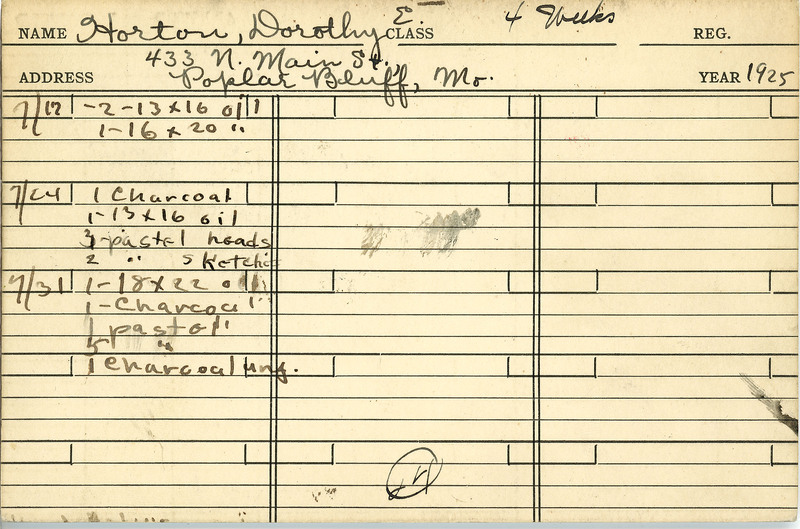 NAME Horton, Dorothy E. CLASS 4 Weeks REG.
433 N. Main St.,
ADDRESS Poplar Bluff, Mo. YEAR 1925
7/17 -2-13x16 oil
1-16 x 20 "
7/24 1 Charcoal
1-13x16 oil
3-pastel heads
2 " sketches
7/31 1-18x22 oil
1-Charcoal
1 pastel
5 "
1 charcoal